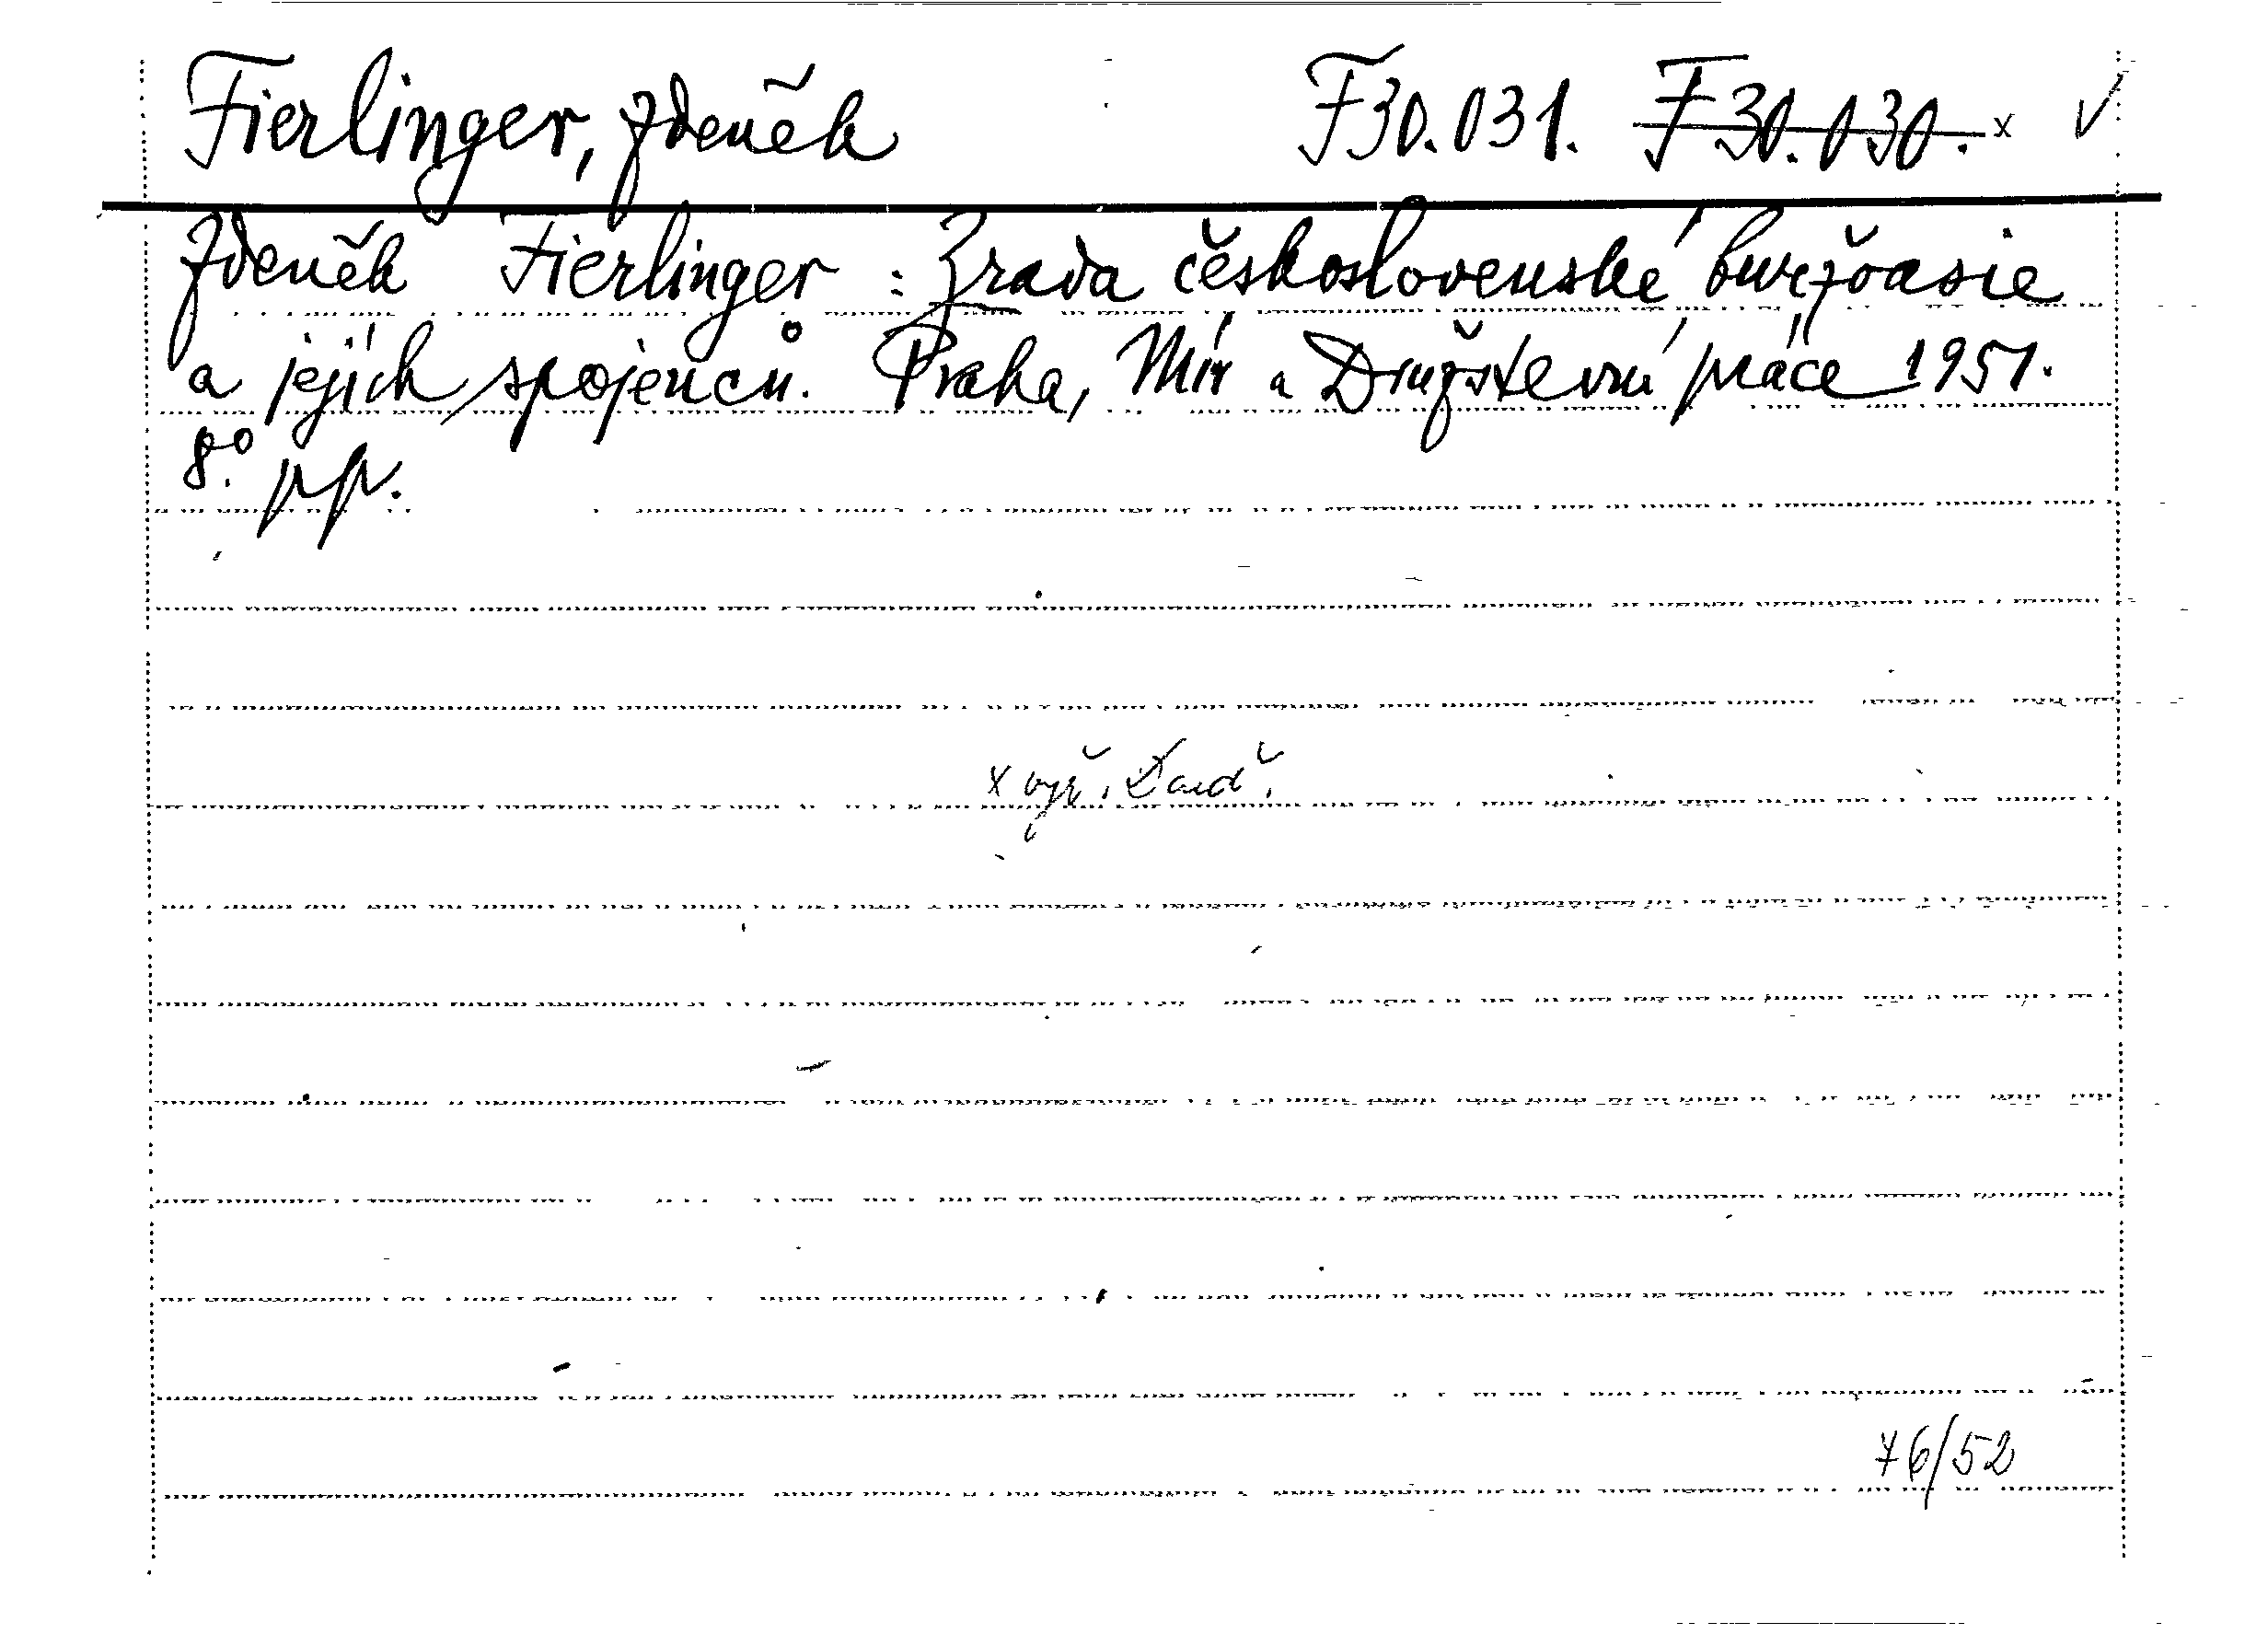 Fierlinger, Zdeněk F30.031. F30.030. x √
Zdeněk Fierlinger : Zrada československé buržoasie
a jejich spojenců. Praha, Mír a Družstevní práce 1951.
8°. pp.
x vyř.
76/52